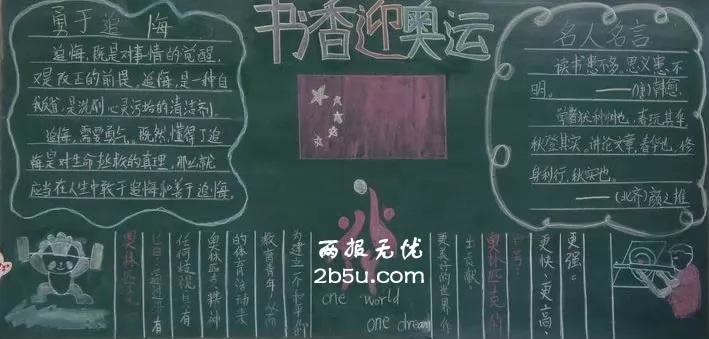 书香迎奥运
勇于追悔
追悔,既是对事情的觉醒,
又是改正的前提。追悔,是一种自
我反省,是洗刷心灵污垢的清洁剂。
追悔,需要勇气。既然懂得了追
悔是对生命拯救的真理,那么就
应当在人生中敢于追悔和善于追悔。
名人名言
读书患不多,思义患不
明。——(唐)韩愈
学者犹种树也,春玩其华,
秋登其实,讲论文章,春华也,修
身利行,秋实也。
——(北齐)颜之推
更强。
更快、更高、
口号:
奥林匹克的
出贡献。
更美好的世界作
为建立一个和平的
教育青年,从而
的体育活动来
奥林匹克精神
任何歧视、具有
奥林匹克
one world
one dream
两报无忧
2b5u.com